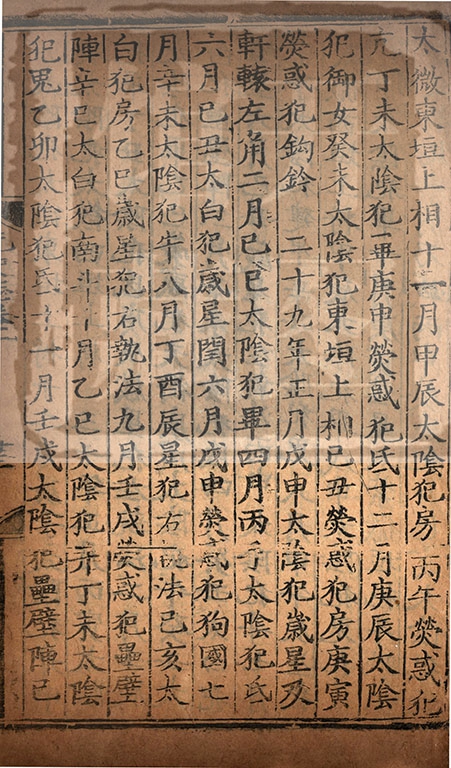 太微東垣上相十一月甲辰太陰犯房丙午熒惑犯
亢丁未太陰犯畢庚申熒惑犯氐十二月庚辰太陰
犯御女癸未太陰犯東垣上相己丑熒惑犯房庚寅
熒惑犯鈎鈐二十九年正月戊申太陰犯歲星及
軒轅左角二月己巳太陰犯畢四月丙子太陰犯氐
六月己丑太白犯歲星閏六月戊申熒惑犯狗國七
月辛未太陰犯牛八月丁酉辰星犯右執法己亥太
白犯房乙巳歲星犯右執法九月壬戌熒惑犯壘壁
陣辛巳太白犯南斗十月乙巳太陰犯井丁未太陰
犯鬼乙卯太陰犯氐十一月壬戌太陰犯壘壁陣己